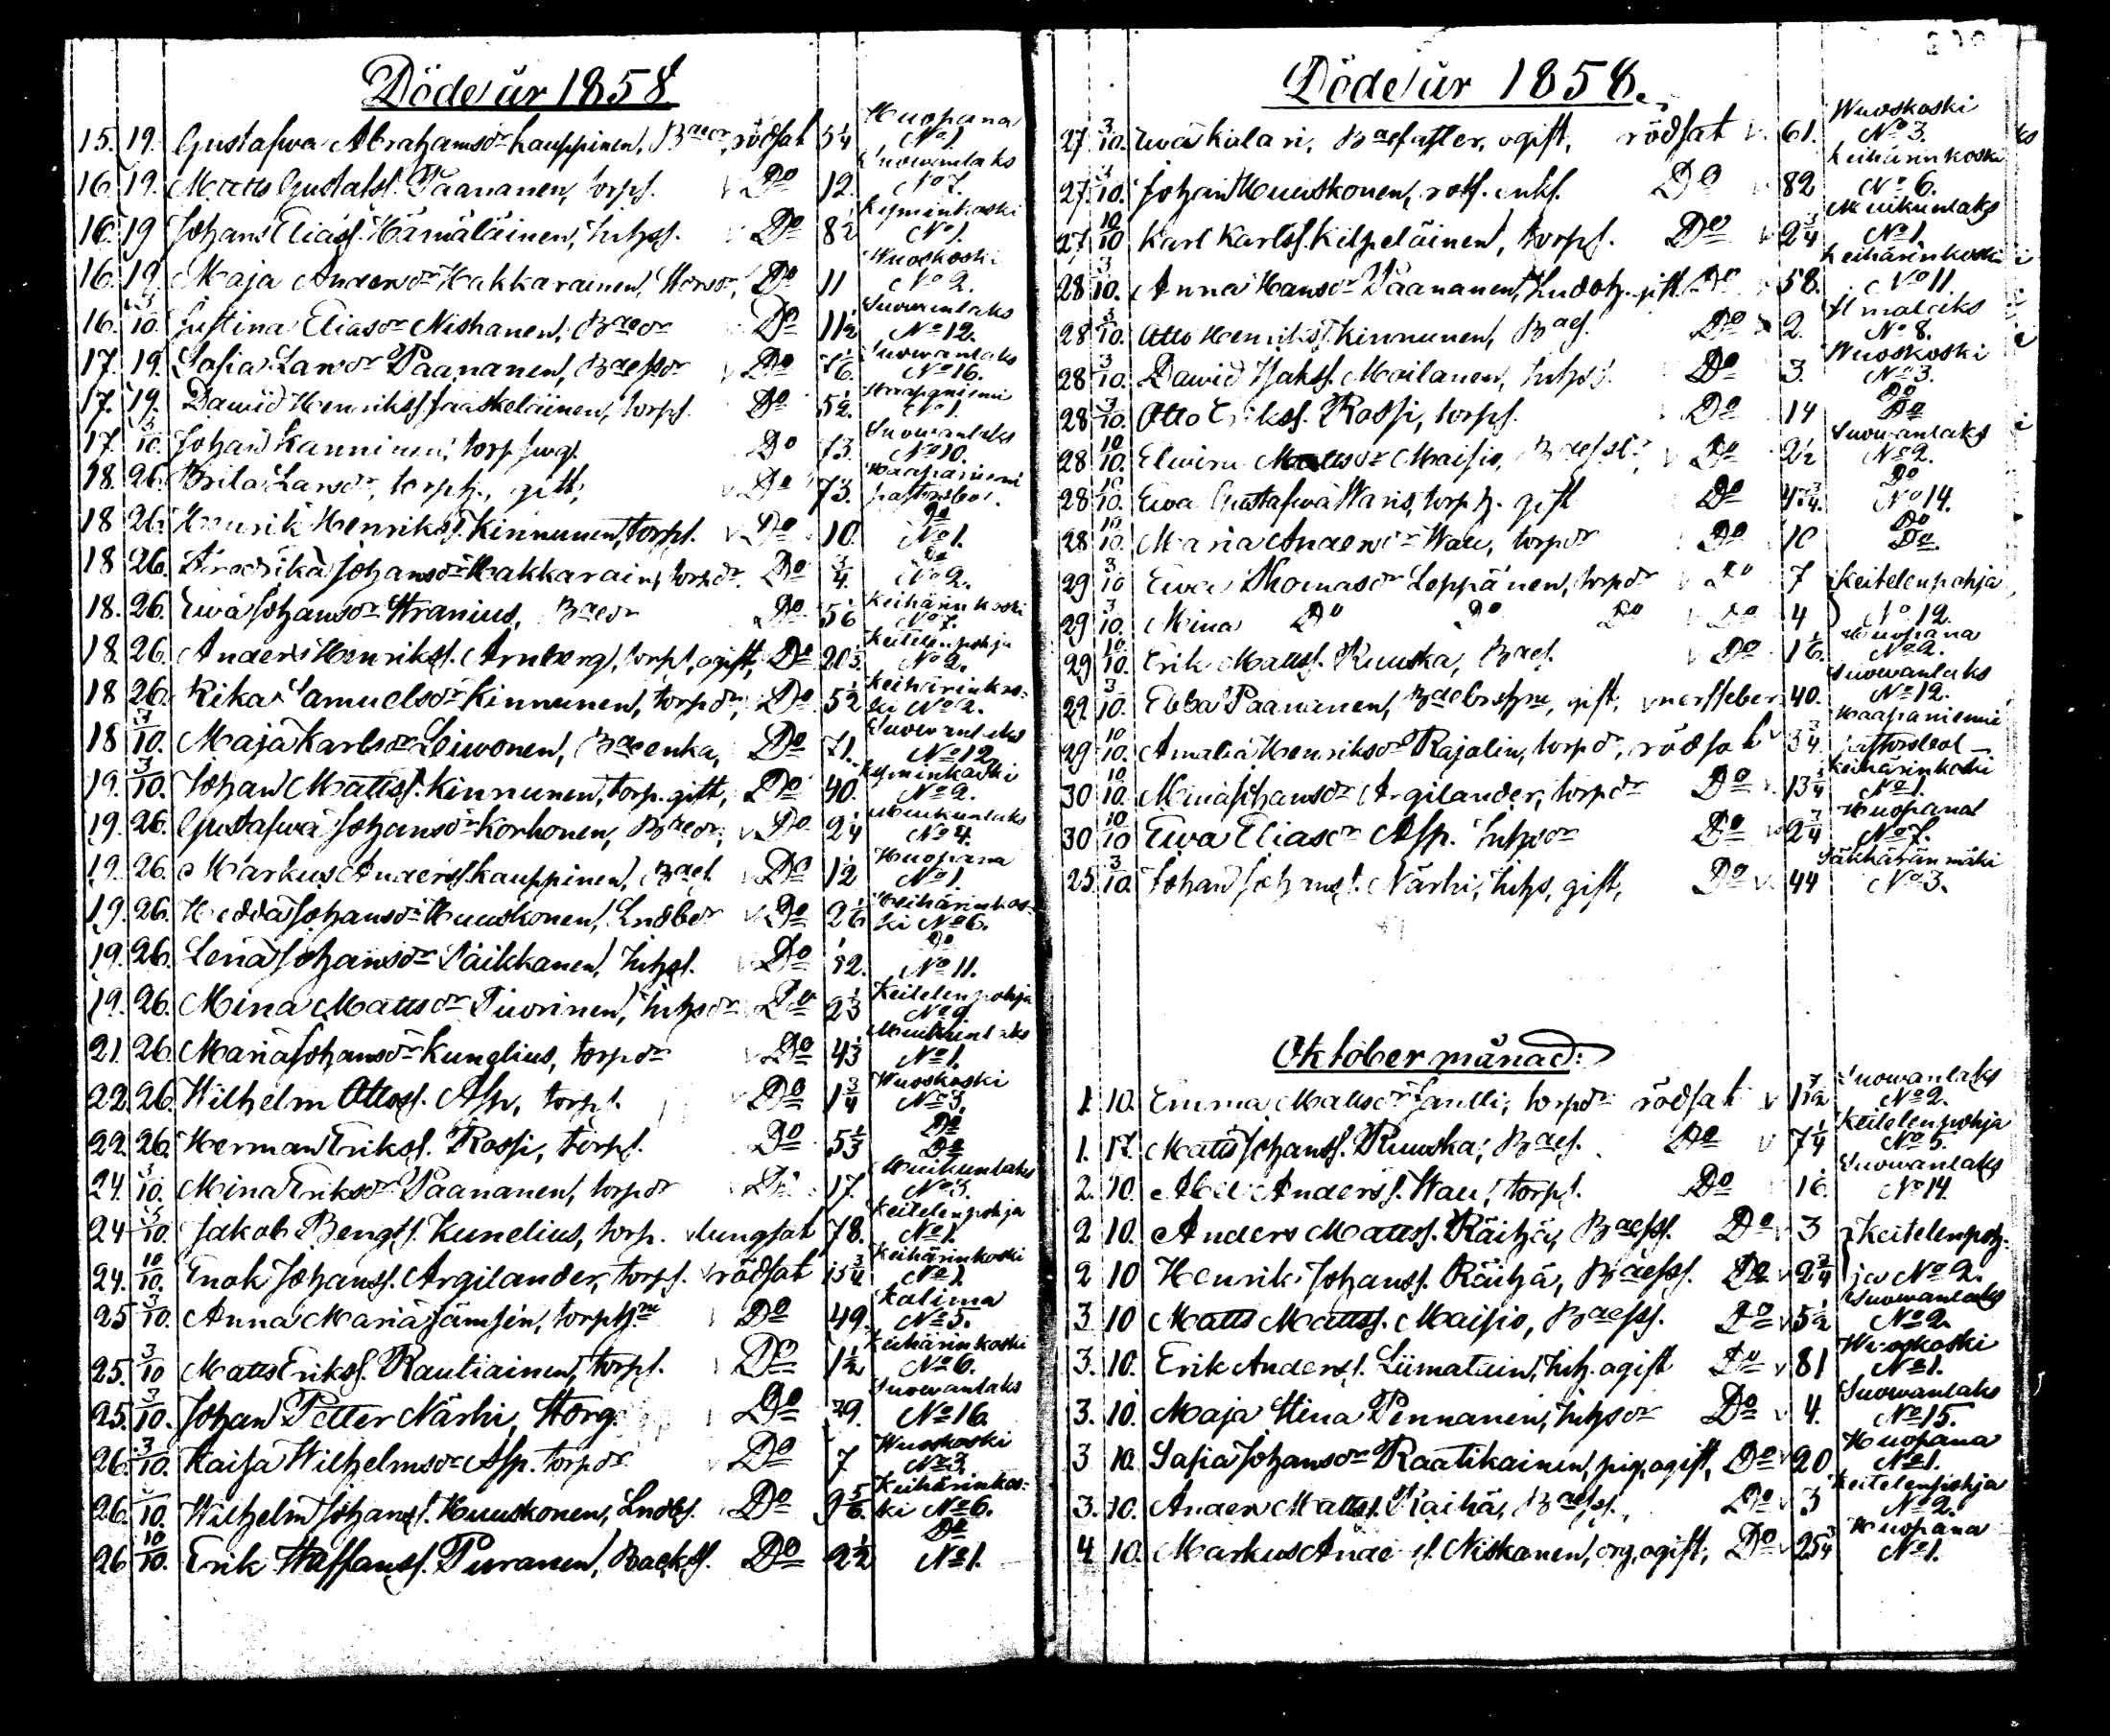 Döde år 1858
15. 19. Gustafwa Abrahamsdr Kauppinen, Baedr, rödsot 5 1/4 Huopana No 1.
16. 19. Matts Gustafss. Paananen, torps. Do 12. Suowanlaks No 7.
16. 19 Johan Eliass. Hämäläinen, Inhss. Do 8 1/2 Kyminkoski No 1.
16. 19. Maja Andersdr Hakkarainen, Do 11 Wuoskoski No 2.
16. 3/10. Justina Eliasdr Niskanen, Baedr Do 11 1/2 Suowanlaks No 12.
17. 19. Sofia Larsdr Paananen, Baessdr Do Suowanlaks No 16.
17. 19. Dawid Henrikss. Jääskeläinen, torps. Do 5 1/2. Haapaniemi No 1.
17. 3/10. Johan Kanninen, torp. Do 73. Suowanlaks No 10.
18. 26. Brita Larsdr, torph., gift, Do 73. Haapaniemi pastorsbol.
18 26. Henrik Henrikss. Kinnunen, torps. Do 10. Do No 1.
18 26. Fredrika Johansdr Hakkarain, torpdr. Do 3/4. Do No 2.
18. 26. Ewa Johansdr Stranius, Baedr Do Keihärinkoski No 7.
18. 26. Anders Henrikss. Arnberg, torps, ogift, Do Keitelenpohja No 2.
18 26. Rika Samuelsdr Kinnunen, torpdr, Do 5 1/2 Keihärinkos-
ki No 2.
18 3/10. Maja Karlsdr Leiwonen, Baeenka, Do 71. Suowanlaks No 12
19. 3/10. Johan Mattss. Kinnunen, torp. gift, Do 40. Kyminkoski No 2.
19. 26. Gustafwa Johansdr Korhonen, Baedr, Do 2 1/4 Muikunlaks No 4.
19. 26. Markus Anderss. Kauppinen, Baes. Do 1/2 Huopana No 1.
19. 26. Hedda Johansdr Huuskonen, Lndbdr Do 2 1/6 Keihärinkos-
ki No 6.
19. 26. Lena Johansdr Päikkanen, Inhss. Do Do No 11.
19. 26. Mina Mattsdr Tiuorinen, Inhsdr Do 2 1/3 Keitelenpohja No 9.
21. 26. Maria Johansdr Kunelius, torpdr Do 4 1/3 Muikunlaks No 1.
22. 26. Wilhelm Ottoss. Asp, torps. Do 1 3/4 Wuoskoski No 3.
22. 26. Herman Erikss. Rossi, torps. Do 5 1/3 Do Do
24. 3/10. Mina Eriksdr Paananen, torpdr Do 17. Muikunlaks No 3.
24 3/10. Jakob Bengtss. Kunelius, torp. lungsot 78. Keitelenpohja No 1.
24. 10/10. Enok Johanss. Argilander, torps. rödsot Keihärinkoski No 1.
25 3/10. Anna Maria Jämsén, torphru Do 49. Kolima No 5.
25. 3/10 Matts Erikss. Rautiainen, torps. Do 1 1/2 Keihärinkoski No 6.
25. 3/10. Johan Petter Närhi, Do Suowanlaks No 16
26. 3/10. Kaisa Wilhelmsdr Asp. torpdr Do 7 Wuoskoski No 3
26. 3/10. Wilhelm Johanss. Huuskonen, Lndbs. Do 9 5/6. Keihärinkos-
ki No 6.
26 10/10. Erik Staffanss. Puranen, Do 2 1/2 Do No 1.
Döde år 1858.
27 3/10. Ewa Kalari, ogift, rödsot 61. Wuoskoski No 3.
27. 3/10. Johan Huuskonen, rotf. enkl. Do 82 Keihärinkoski No 6.
27. 10/10 Karl Karlss. Kilpeläinen, torps. Do 2 3/4 Muikunlaks No 1.
28 3/10. Anna Hansdr Paananen, gift Do 58. Keihärinkoski No 11.
28 3/10. Otto Henrikss. Kinnunen, Baes. Do 2. Ilmolaks No 8.
28. 3/10. Dawid Isakss. Moilanen, Inhss. Do 3. Wuoskoski No 3.
28 3/10. Otto Erikss. Rossi, torps. Do 14 Do Do
28 10/10. Elwira Mattsdr Maisio, Do 2 1/2 Suowanlaks No 2.
28 10/10. Ewa Gustafwa Waris, torph. gift Do Do No 14.
28 10/10. Maria Andersdr Wau, torpdr Do 10 Do Do.
29 3/10 Ewa Thomasdr Leppänen, torpdr Do 7 Keitelenpohja
29 3/10. Mina Do Do Do Do 4 No 12.
29 10/10. Erik Mattss. Ruuska, Baes. Do 1 1/6. Huopana No 2.
29. 3/10. Ebba Paananen, gift, nerffeber 40. Suowanlaks No 12.
29 10/10. Amalia Henriksdr Rajalin, torpdr, rödsot 3 3/4. Haapaniemi pastorsbol
30 10/10. Mina Johansdr Argilander, torpdr Do 13 Keihärinkoski No 1.
30 10/10 Ewa Eliasdr Asp. Inhsdr Do 2 3/4 Huopana No 7.
25. 3/10. Johan Johanss. Närhi, Inhs, gift, Do 44 Säkkärinmäki No 3.
Oktober månad:
1. 10. Emma Mattsdr Jantti, torpdr rödsot Suowanlaks No 2.
1. 17. Matts Johanss. Ruuska, Baes. Do 7 1/4 Keitelenpohja No 5.
2. 10. Abel Anderss. Wau, torps. Do 16. Suowanlaks No 14.
2 10. Anders Mattss. Räihä, Baess. Do 3 Keitelenpoh-
2 10 Henrik Johanss. Räihä, Baess. Do 2 3/4 ja No 2.
3 10 Matts Mattss. Maisio, Baess. Do 5 1/2 Suowanlaks No 2.
3. 10. Erik Anderss. Liimatain, Inh. ogift Do 81 Wuoskoski No 1.
3. 10. Maja Stina Pennanen, Inhsdr Do 4. Suowanlaks No 15.
3 10. Sofia Johansdr Raatikainen, pig, ogift, Do 20 Huopana No 1.
3. 10. Anders Mattss. Räihä, Baess. Do 3 Keitelenpohja No 2.
4 10. Markus Anderss. Niskanen, drg, ogift, Do 25 3/4 Huopana No 1.